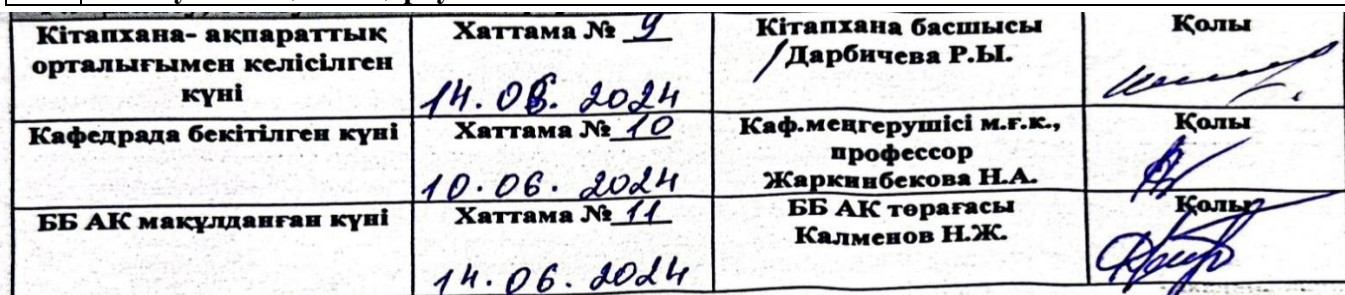 Кітапхана- ақпараттық орталығымен келісілген күні
Хаттама № 9
14. 06. 2024
Кітапхана басшысы
Дарбичева Р.Ы.
Қолы
Кафедрада бекітілген күні
Хаттама № 10
10. 06. 2024
Каф.меңгерушісі м.ғ.к.,
профессор
Жаркинбекова Н.А.
Қолы
ББ АК мақұлданған күні
Хаттама № 11
14. 06. 2024
ББ АК төрағасы
Калменов Н.Ж.
Қолы